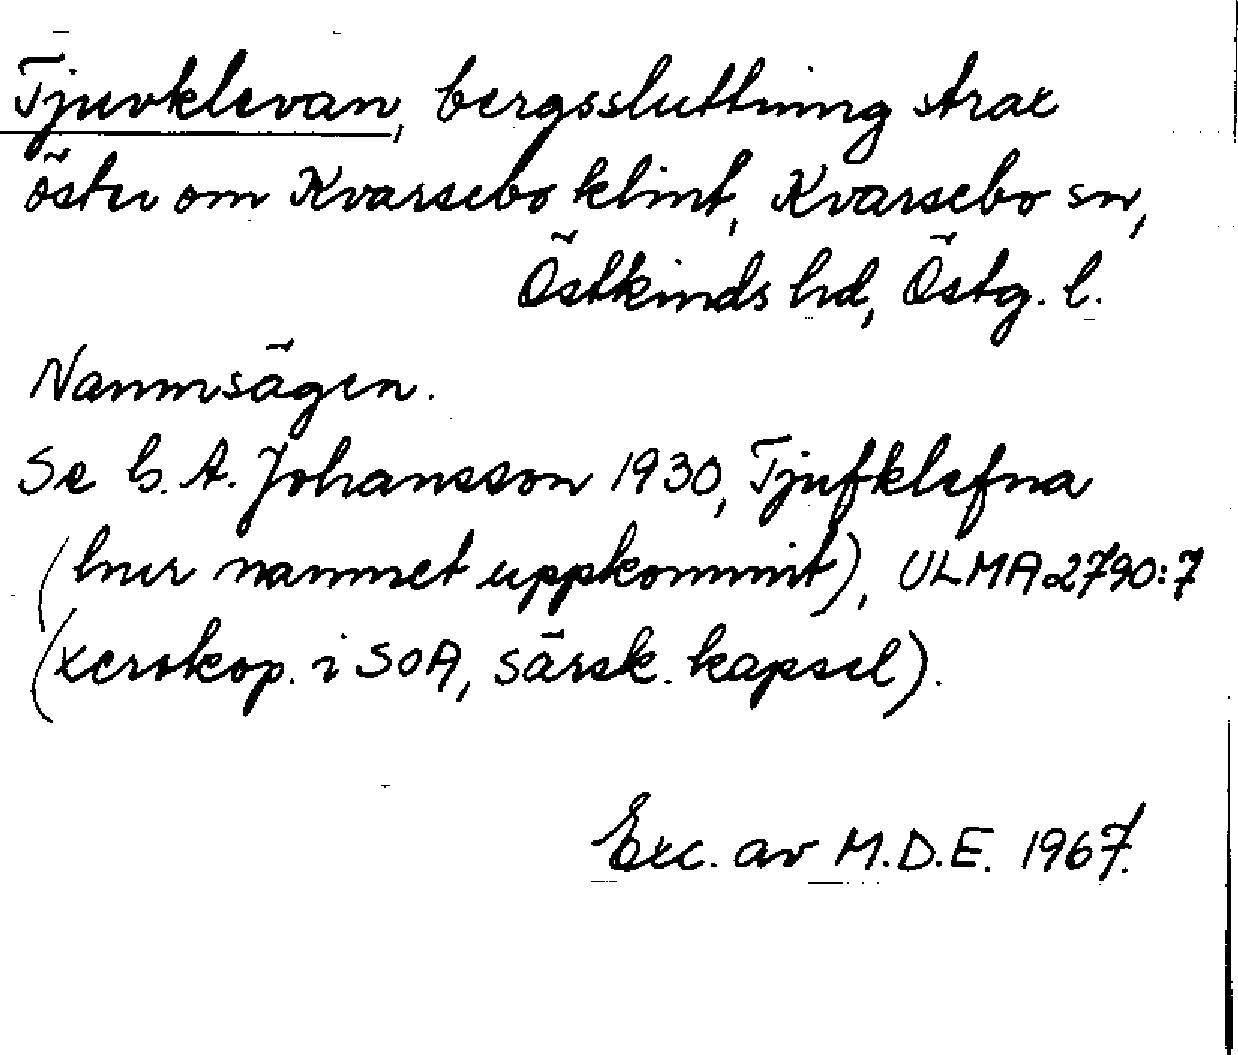 Tjuvklevan, bergssluttning strax
öster om Kvarsebo klint, Kvarsebo sn,
Östkinds hd, Östg. l.
Namnsägen.
Se G. A. Johansson 1930, Tjufklefna
(hur namnet uppkommit), ULMA 2790:7
(xerokop. i SOA, särsk. kapsel).
Exc. av M.D.E. 1967.